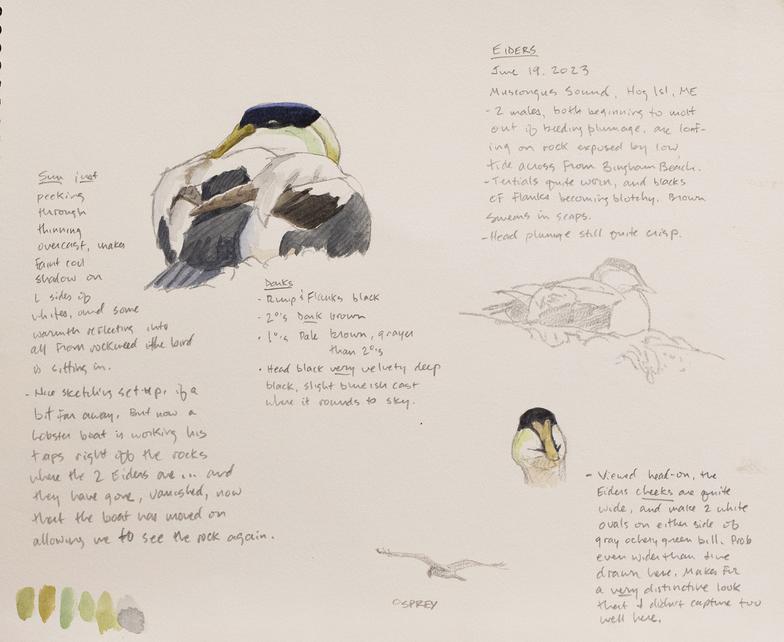 EIDERS
June 19. 2023
Muscongus Sound, Hog Isl, ME
- 2 males, both beginning to molt
out of breeding plumage, are loaf-
ing on rock exposed by low
tide across from Bingham Beach.
- Tertials quite worn, and blacks
of flanks becoming blotchy. Brown
smears in scaps.
- Head plumage still quite crisp.
Sun just
peeking
through
thinning
overcast, makes
faint cool
shadow on
L sides of
whites, and some
warmth reflecting into
all from rockweed the bird
is sitting in.
- Nice sketching set-up, if a
bit far away. But now a
Lobster boat is working his
traps right off the rocks
where the 2 Eiders are ... and
they have gone, vanished, now
that the boat has moved on
allowing me to see the rock again.
Darks
- Rump & Flanks black
- 2°'s Dark brown
- 1°'s Pale brown, grayer
than 2°'s
• Head black very velvety deep
black, slight blueish cast
where it rounds to sky.
- Viewed head-on, the
Eiders cheeks are quite
wide, and make 2 white
ovals on either side of
gray ochery green bill. Prob
even wider than
drawn here. Makes for
a very distinctive look
that I didn't capture too
well here.
OSPREY